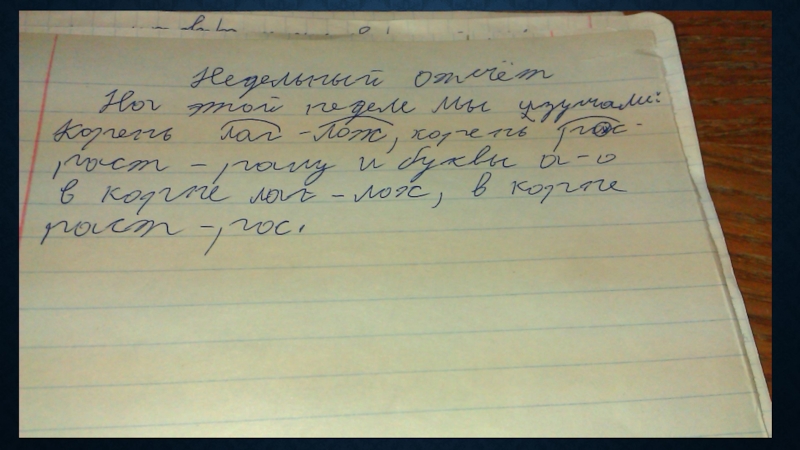 Недельный отчёт
На этой неделе мы изучали:
Корень лаг - лож, корень рос-
раст - ращ и буквы а-о
в корне лаг - лож, в корне
раст - рос.